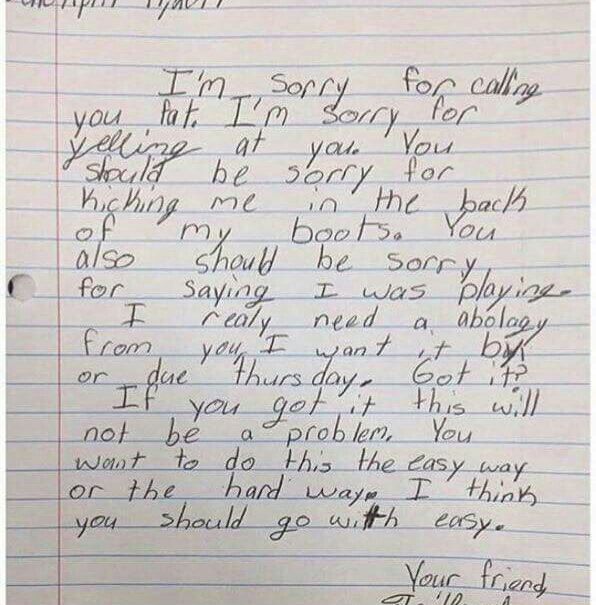 I'm sorry for calling
you fat. I'm sorry for
yelling at you. You
should be sorry for
kicking me in the back
of my boots. You
also should be sorry
for saying I was playing.
I realy need a abology
from you, I want it by
or due thursday. Got it?
If you got it this will
not be a problem. You
want to do this the easy way
or the hard way. I think
you should go with easy.
Your friend,